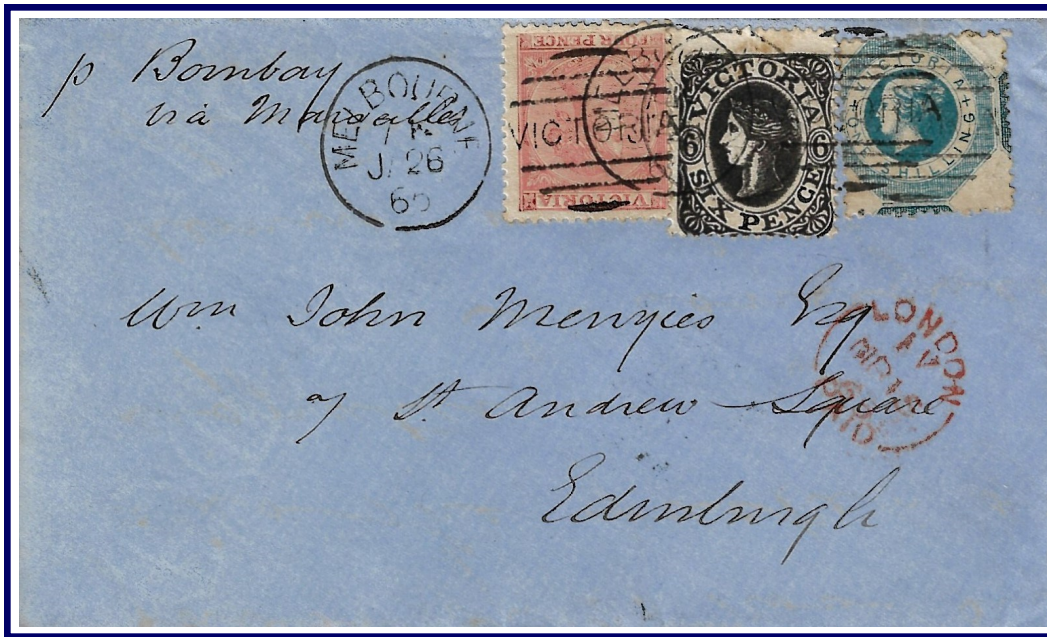 p Bombay
via Marseilles
MELBOURNE
JA 26
65
FOUR PENCE
VICTORIA
VICTORIA
VICTORIA
6 6
SIX PENCE
VICTORIA
SHILLING
Wm John Menzies Esq
7 St Andrew Square
Edinburgh
LONDON
PAID